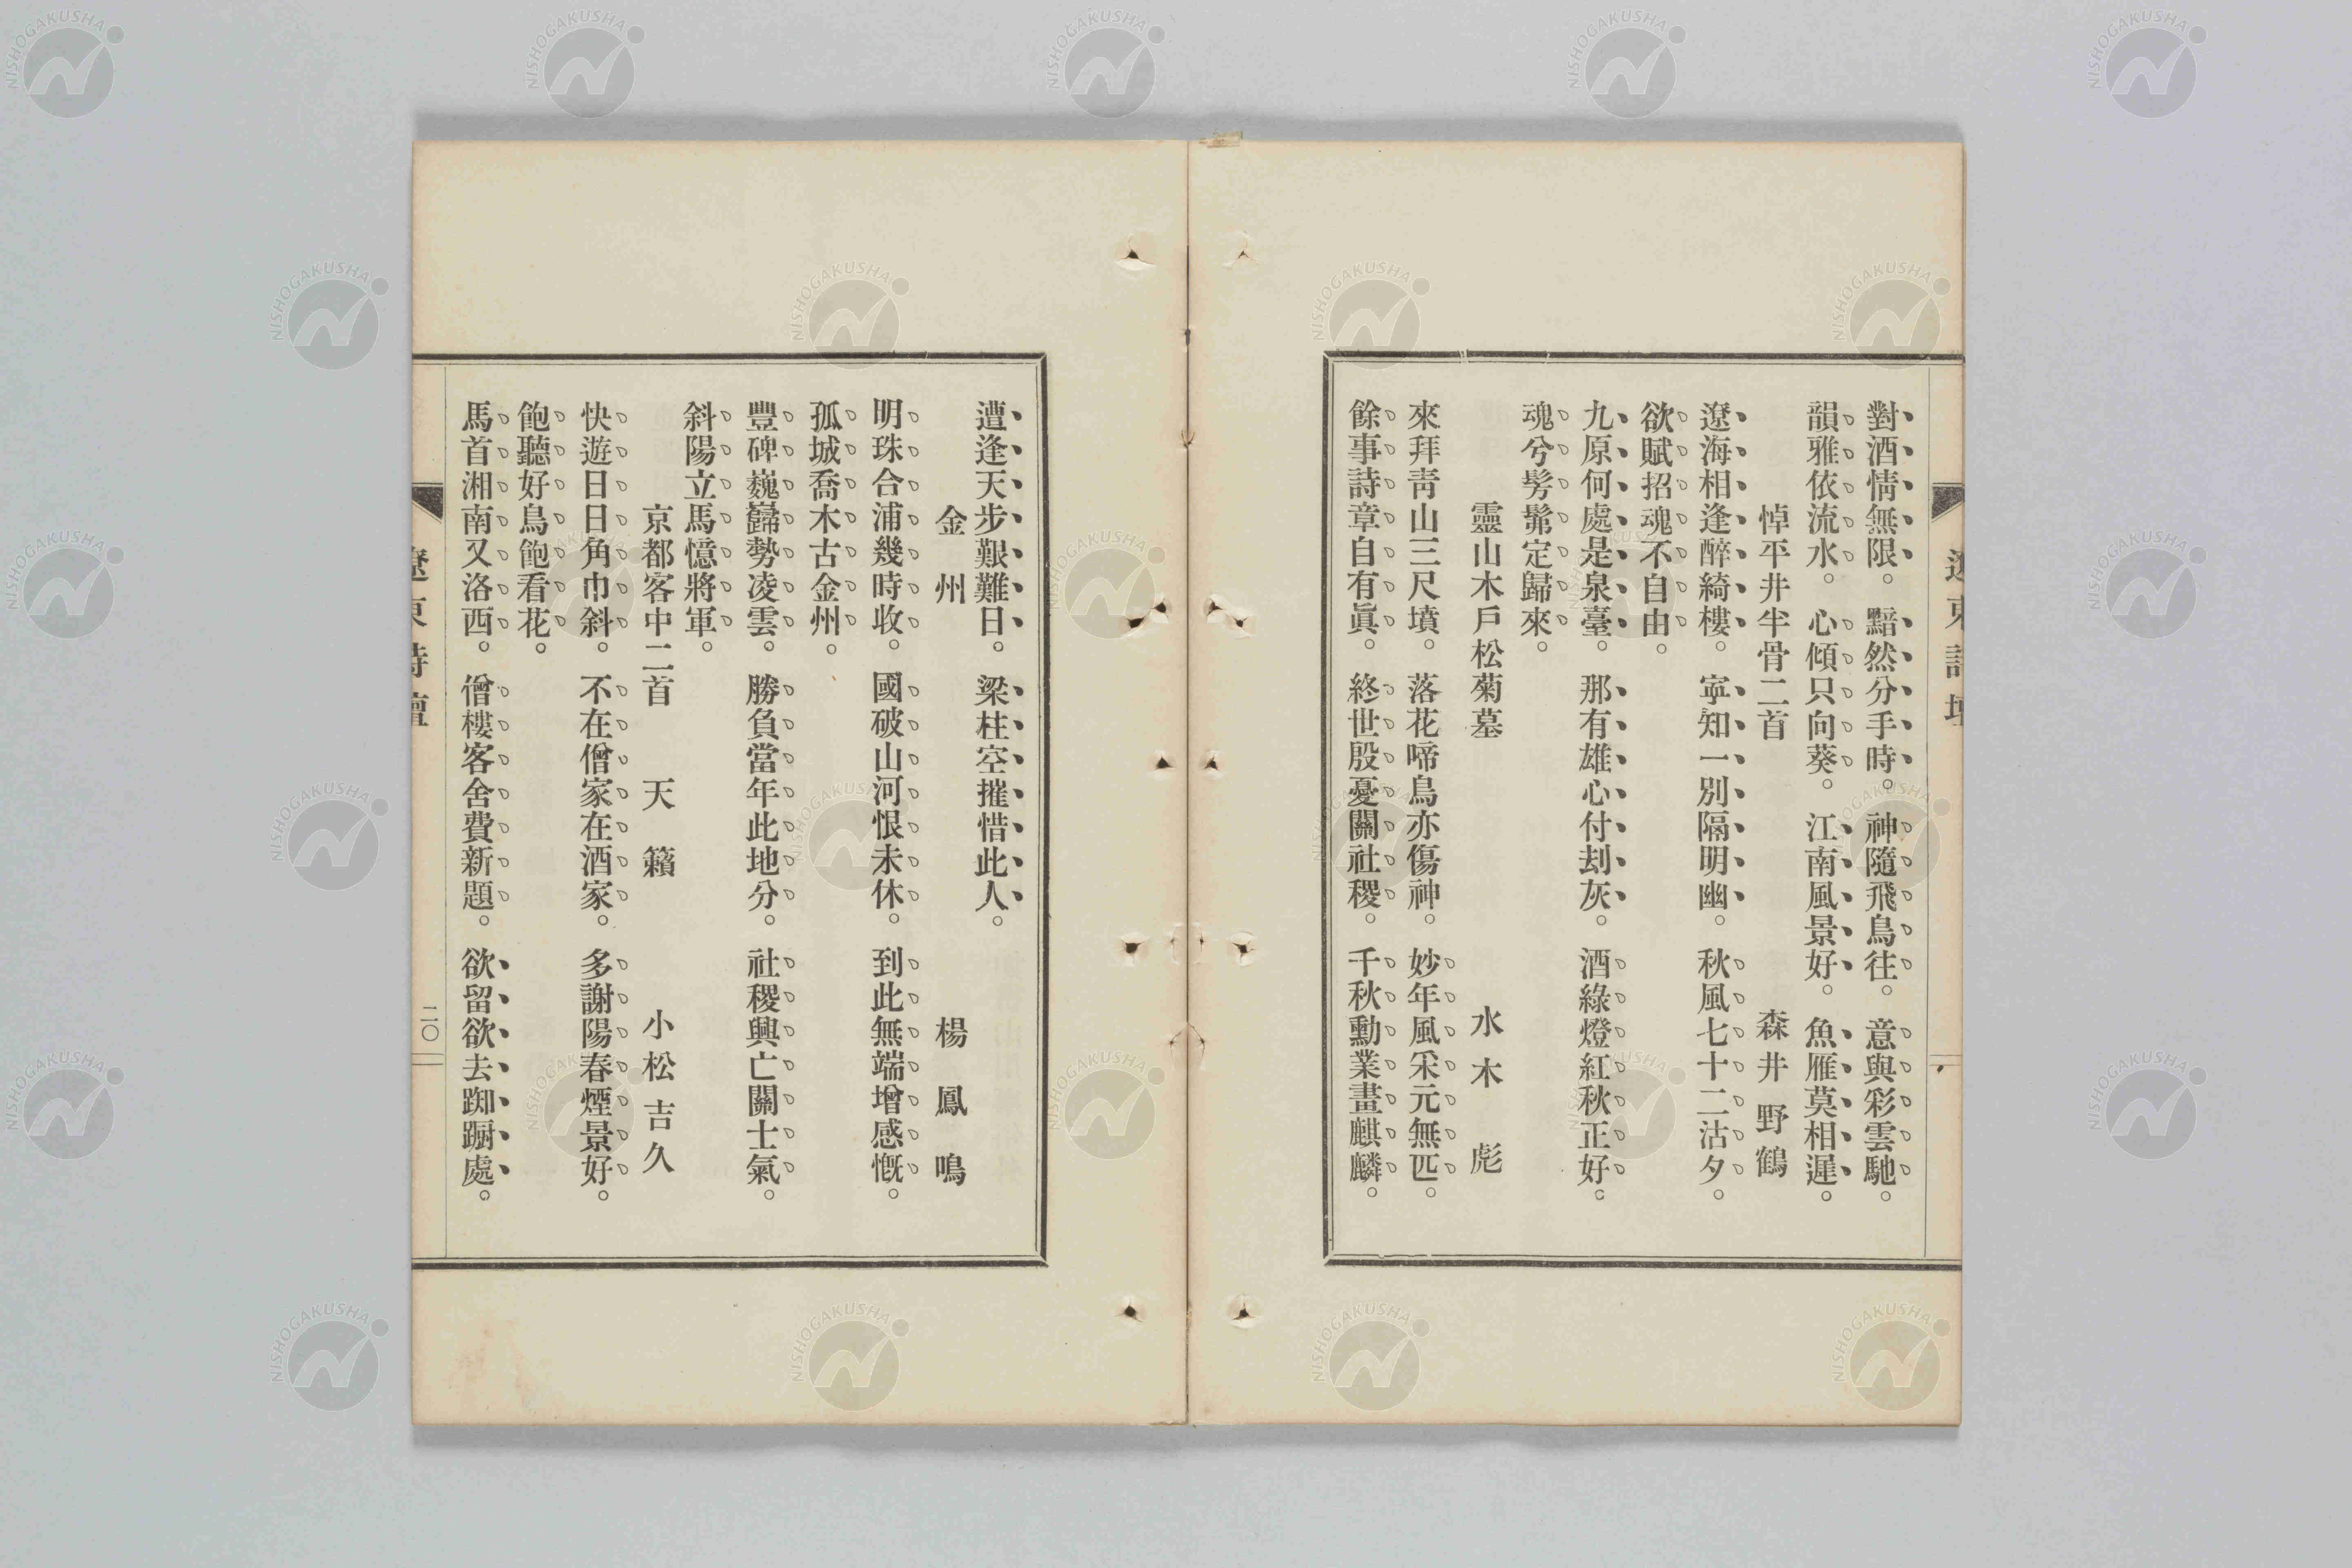 對酒情無限。黯然分手時。神隨飛鳥往。意與彩雲馳。
韻雅依流水。心傾只向葵。江南風景好。魚雁莫相遲。
悼平井半骨二首 森井野鶴
遼海相逢醉綺樓。寧知一別隔明幽。秋風七十二沽夕。
欲賦招魂不自由。
九原何處是泉臺。那有雄心付刦灰。酒綠燈紅秋正好。
魂兮髣髴定歸來。
靈山木戶松菊墓 水木彪
來拜靑山三尺墳。落花啼鳥亦傷神。妙年風采元無匹。
餘事詩章自有眞。終世殷憂關社稷。千秋勳業畫麒麟。
遼東詩壇
遭逢天步艱難日。梁柱空摧惜此人。
金州 楊鳳鳴
明珠合浦幾時收。國破山河恨未休。到此無端增感慨。
孤城喬木古金州。
豐碑巍巋勢凌雲。勝負當年此地分。社稷興亡關士氣。
斜陽立馬憶將軍。
京都客中二首 天籟 小松吉久
快遊日日角巾斜。不在僧家在酒家。多謝陽春煙景好。
飽聽好鳥飽看花。
馬首湘南又洛西。僧樓客舍費新題。欲留欲去踟蹰處。
遼東詩壇 二〇
NISHOGAKUSHA